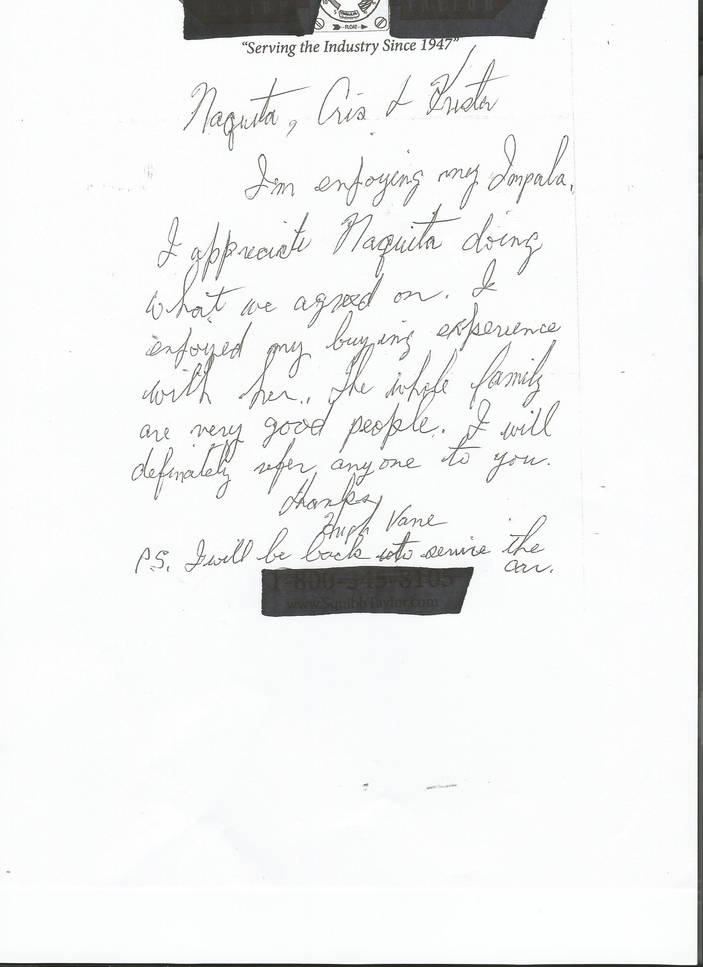 "Serving the Industry Since 1947"
Naquita, Cris & Krista
I'm enjoying my Impala.
I appreciate Naquita doing
what we agreed on. I
enjoyed my buying experience
with her.. The whole family
are very good people. I will
definately refer anyone to you.
Thanks
Hugh Vane
P.S. I will be back into service the
car.
1-800-345-8105
www.SquibbTaylor.com